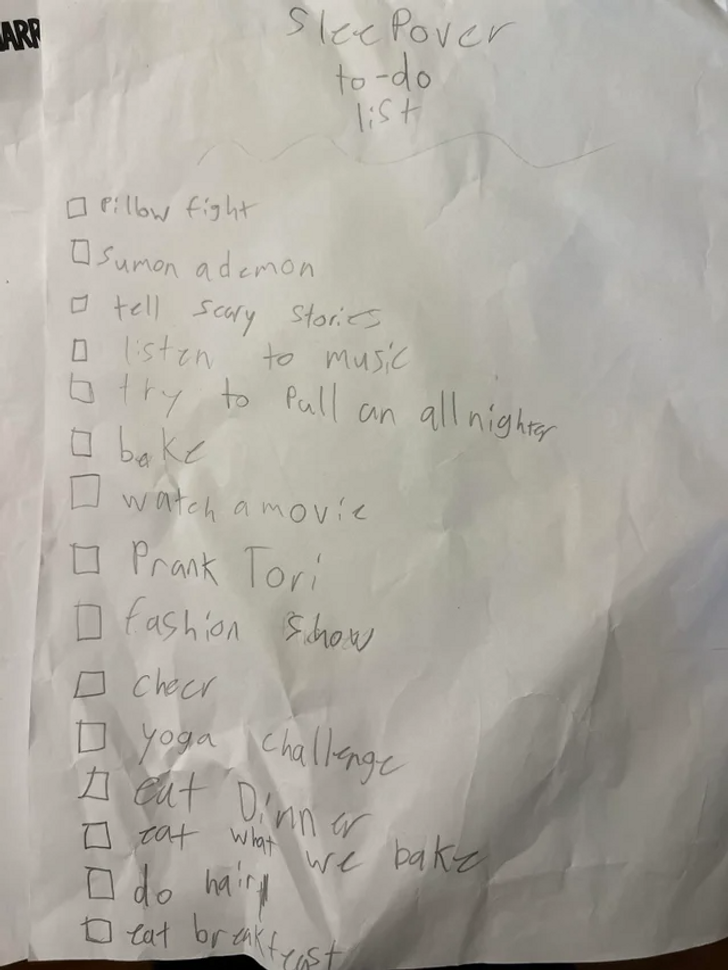 ARR
SleePover
to-do
list
Pillow fight
Sumon a demon
tell scary stories
listen to music
try to Pull an all nighter
bake
watch a movie
Prank Tori
fashion show
cheer
yoga challenge
eat Dinner
eat what we bake
do hair
eat breakfeast